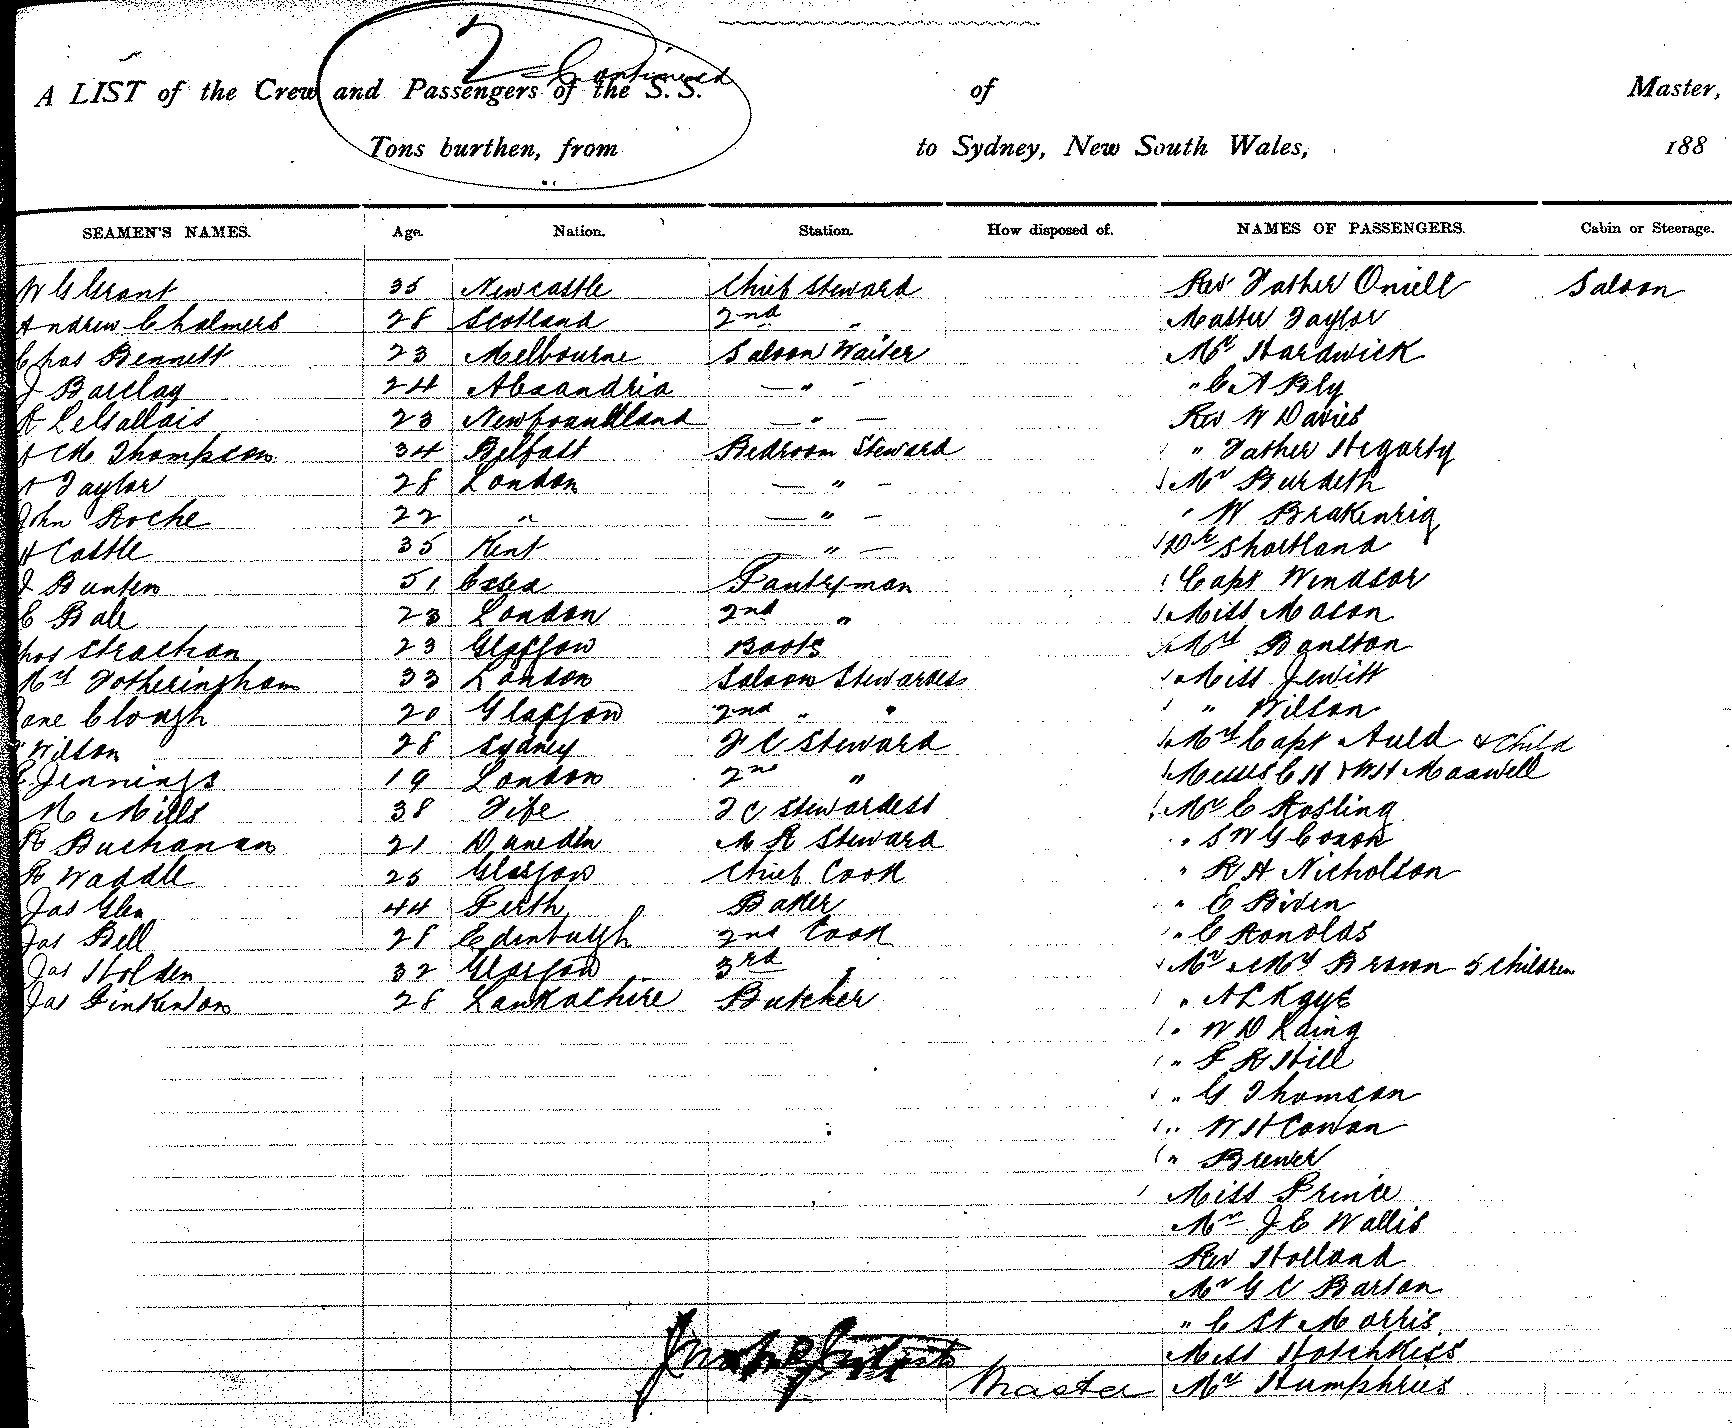 2 Continued
A LIST of the Crew and Passengers of the S.S. of Master,
Tons burthen, from to Sydney, New South Wales, 188
SEAMEN'S NAMES. Age. Nation. Station. How disposed of. NAMES OF PASSENGERS. Cabin or Steerage.
W G Grant 35 Newcastle Chief Steward Rev Father Oniell Saloon
Andrew Chalmers 28 Scotland 2nd " Master Taylor
Chas Bennett 23 Melbourne Saloon Waiter Mr Hardwick
J Barclay 24 Alexandria — " — " C A Bly
A LeGallais 23 Newfoundland — " — Rev W Davies
A M Thompson 34 Belfast Bedroom Steward " Father Hegarty
A Taylor 28 London — " — Mr Burdeth
John Roche 22 " — " — " W Brakenrig
H Castle 35 Kent — " — Dr Shortland
J Bunten 51 Essex Pantryman Capt Windsor
C Bale 23 London 2nd " Miss Mason
Chas Strachan 23 Glasgow Boots Mrs Boulton
Mrs Fotheringham 33 London Saloon Stewardess " Miss Jewitt
Jane Clough 20 Glasgow 2nd " " " Wilson
Wilson 28 Sydney F C Steward Mrs Capt Auld & Child
C Jennings 19 London 2nd " Messrs C H & W H Maxwell
M Mills 38 Fife F C Stewardess Mr C Rosling
R Buchanan 21 Dunedin M R Steward " S W G Coach
R Waddle 25 Glasgow Chief Cook " R H Nicholson
Jas Glen 44 Perth Baker " E Biden
Jas Bell 28 Edinburgh 2nd Cook " C Ronolds
Jas Holden 32 Glasgow 3rd " Mr & Mrs Brown 5 Children
Jas Pinkerton 28 Lankashire Butcher " A L Kaye
" W D Laing
" F R Hill
" G Thomson
" W H Cowan
" Brewer
Miss Prince
Mr J E Wallis
Rev Holland
Mr G C Barton
" C St Morris
Miss Hotchkiss
Master Mrs Humphries